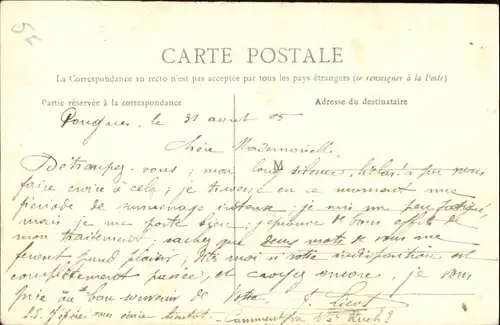 CARTE POSTALE
La Correspondance au recto n'est pas acceptée par tous les pays étrangers (se renseigner à la Poste)
Partie réservée à la correspondance
Adresse du destinataire
Pougues, le 31 août 05
Chère Mademoiselle,
M
Détrompez-vous; mon long silence, hélas! a pu vous
faire croire à cela; je traverse en ce moment une
période de surmenage intense; je suis un peu fatigué,
mais je me porte bien; j'éprouve de bons effets de
mon traitement; sachez que deux mots de vous me
feront grand plaisir; dites moi si votre indisposition est
complètement passée, et croyez encore, je vous
prie au bon souvenir de Votre
P.S. J'espère vous écrire bientôt. Comment va